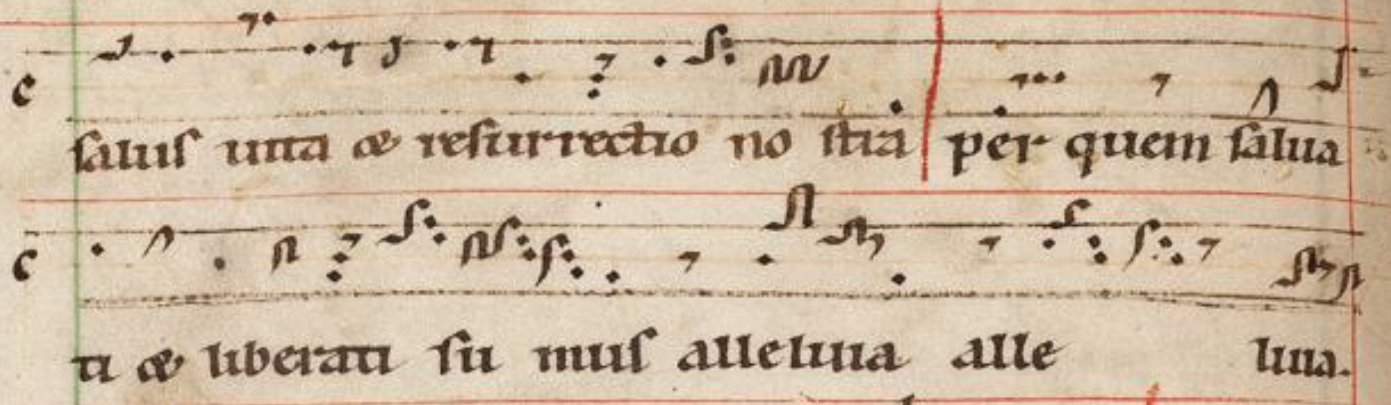 c
saluſ uita & reſurrectio no ſtra per quem ſalua
c
ti & liberati ſu muſ alleluia alle luia.